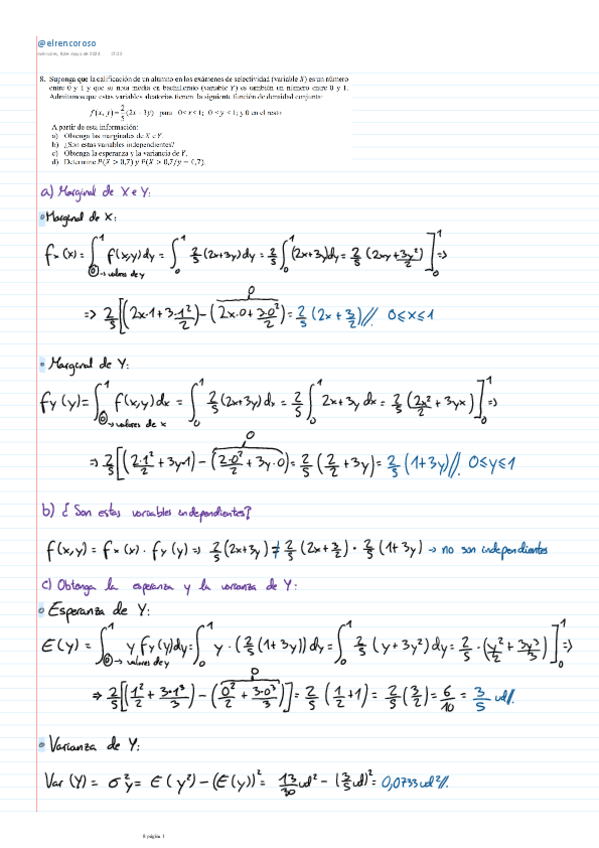 @elrencoroso
8. Suponga que la calificación de un alumno en los exámenes de selectividad (variable X) es un número
entre 0 y 1 y que su nota media en bachillerato (variable Y) es también un número entre 0 y 1.
Admitamos que estas variables aleatorias tienen la siguiente función de densidad conjunta:
f(x, y) = 2/5 (2x + 3y) para 0 < x < 1; 0 < y < 1; y 0 en el resto
A partir de esta información:
a) Obtenga las marginales de X e Y.
b) ¿Son estas variables independientes?
c) Obtenga la esperanza y la variancia de Y.
d) Determine P(X > 0,7) y P(X > 0,7/y = 0,7).
a) Marginal de X e Y:
Marginal de X:
fx (x) = ∫₀¹ f(x,y) dy = ∫₀¹ 2/5 (2x+3y) dy = 2/5 ∫₀¹ (2x+3y) dy = 2/5 (2xy + 3y²/2) ]₀¹ =>
0 → valores de y
0
=> 2/5 [(2x·1 + 3·1²/2) - (2x·0 + 3·0²/2) = 2/5 (2x + 3/2) // 0 ≤ x ≤ 1
Marginal de Y:
fy (y) = ∫₀¹ f(x,y) dx = ∫₀¹ 2/5 (2x+3y) dx = 2/5 ∫₀¹ 2x+3y dx = 2/5 (2x²/2 + 3yx) ]₀¹ =>
0 → valores de x
0
=> 2/5 [(2·1²/2 + 3y·1) - (2·0²/2 + 3y·0) = 2/5 (2/2 + 3y) = 2/5 (1+3y) // 0 ≤ y ≤ 1
b) ¿Son estas variables independientes?
f(x,y) = fx (x) · fy (y) => 2/5 (2x+3y) ≠ 2/5 (2x + 3/2) · 2/5 (1+3y) → no son independientes
c) Obtenga la esperanza y la varianza de Y:
Esperanza de Y:
E(y) = ∫₀¹ y fy(y) dy = ∫₀¹ y · (2/5 (1+3y)) dy = ∫₀¹ 2/5 (y + 3y²) dy = 2/5 · (y²/2 + 3y³/3) ]₀¹ =>
0 → valores de y
0
=> 2/5 [(1²/2 + 3·1³/3) - (0²/2 + 3·0³/3)] = 2/5 (1/2 + 1) = 2/5 (3/2) = 6/10 = 3/5 ud//.
Varianza de Y:
Var (Y) = σ²y = E(y²) - (E(y))² = 13/30 ud² - (3/5 ud)² = 0,0733 ud²//.
8 página 1